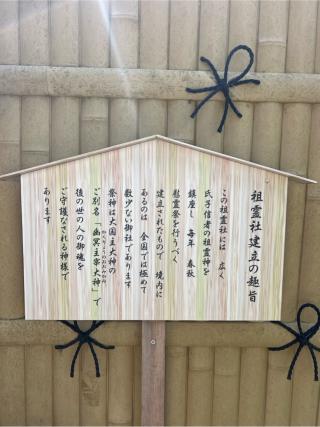 祖霊社建立の趣旨
この祖霊社には 広く
氏子信者の祖霊神を
鎮座し 毎年 春秋
慰霊祭を行うべく
建立されたもので 境内に
あるのは 全国では極めて
数少ない御社であります
祭神は大国主大神の
ご別名「幽冥主宰大神」で
後の世の人の御魂を
ご守護なされる神様で
あります